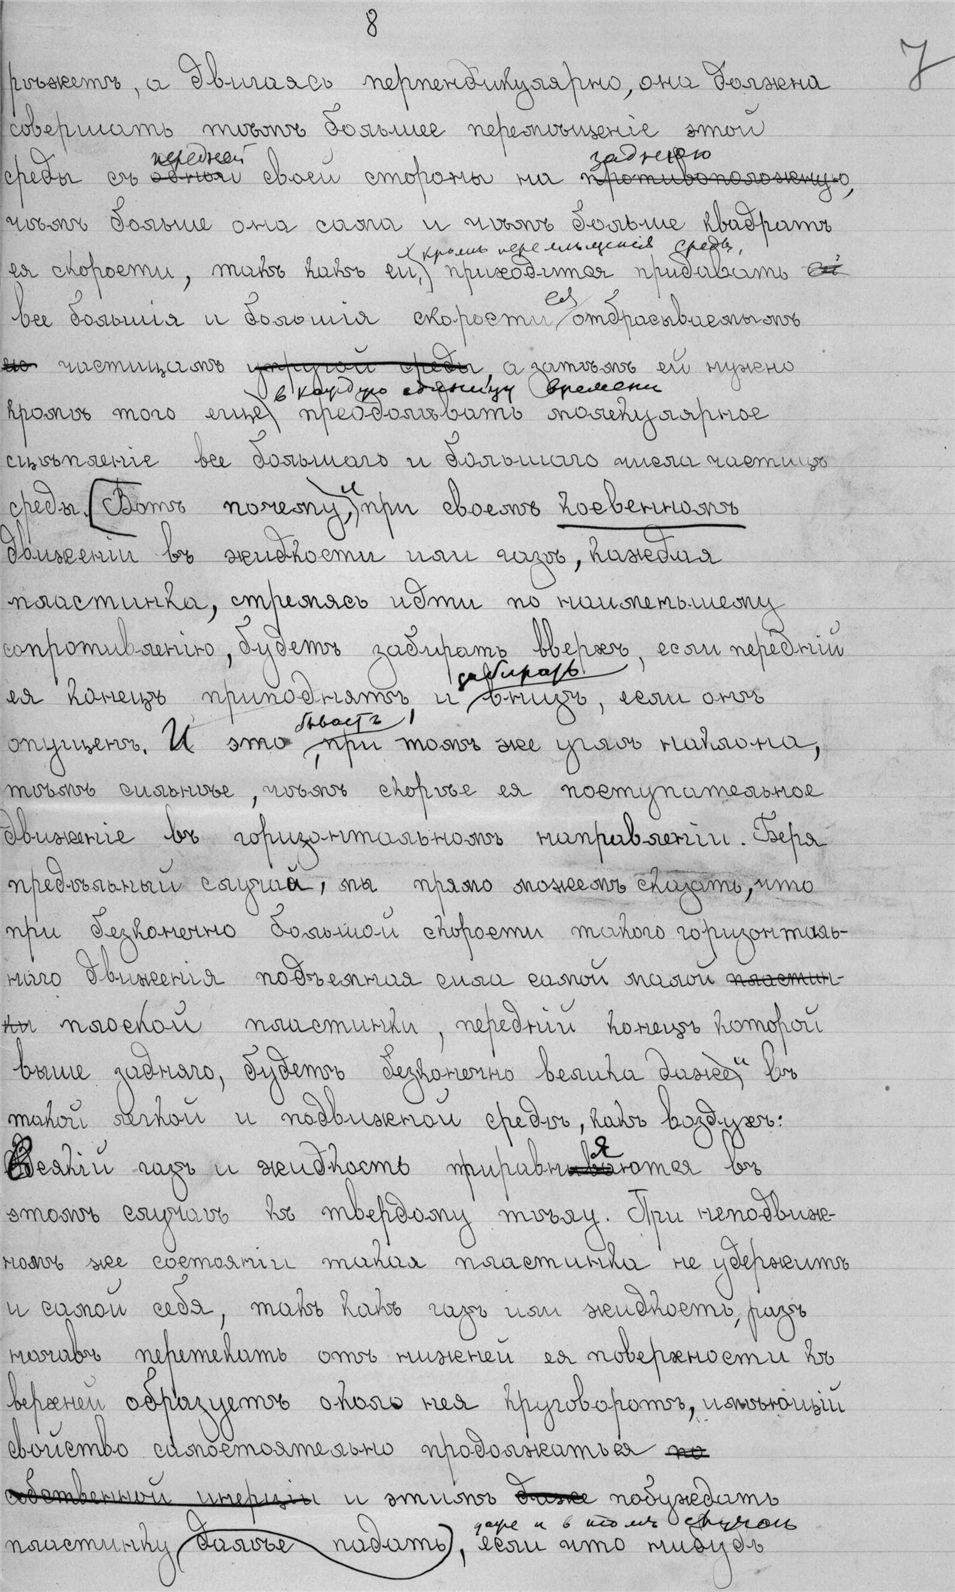 8
7
рѣжетъ, а двигаясь перпендикулярно, она должна
совершать тѣмъ большее перемѣщеніе этой
передней заднюю
среды съ одной своей стороны на противоположную,
чѣмъ больше она сама и чѣмъ больше квадратъ
кромѣ перемѣщенія среды,
ея скорости, такъ какъ ей, приходится придавать
ея
все большія и большія скорости отбрасываемымъ
ею частицамъ упругой среды, а затѣмъ ей нужно
в каждую единицу времени
кромѣ того еще преодолѣвать молекулярное
сцѣпленіе все большаго и большаго числа частицъ
среды. Вотъ почему, и при своемъ косвенномъ
движеніи въ жидкости или газѣ, каждая
пластинка, стремясь идти по наименьшему
сопротивленію, будетъ забирать вверхъ, если передній
забирать
ея конецъ приподнятъ и внизъ, если онъ
бываетъ,
опущенъ. И это при томъ же углѣ наклона,
тѣмъ сильнѣе, чѣмъ скорѣе ея поступательное
движеніе въ горизонтальномъ направленіи. Беря
предѣльный случай, мы прямо можемъ сказать, что
при безконечно большой скорости такого горизонталь-
наго движенія подъемная сила самой малой пластин-
ки плоской пластинки, передній конецъ которой
выше задняго, будетъ безконечно велика даже и въ
такой легкой и подвижной средѣ, какъ воздухъ:
я
Всякій газъ и жидкость приравниваются въ
этомъ случаѣ къ твердому тѣлу. При неподвиж-
номъ же состояніи такая пластинка не удержитъ
и самой себя, такъ какъ газъ или жидкость, разъ
начавъ перетекать отъ нижней ея поверхности къ
верхней образуетъ около нея круговоротъ, имѣющій
свойство самостоятельно продолжаться по
собственной инерціи и этимъ даже побуждать
даже и в томъ случаѣ
пластинку далѣе падать, если что нибудь